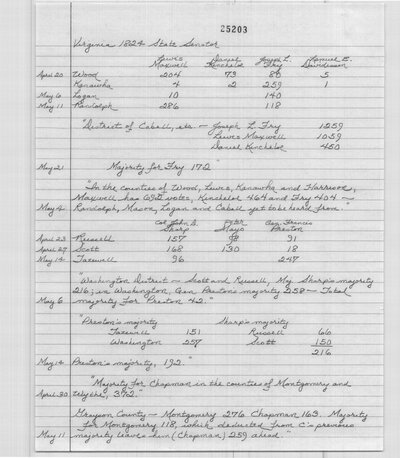 25203
Virginia 1824 State Senator
Lewis Maxwell Daniel Kincheloe Joseph L. Fry Samuel B. Davidsson
April 20 Wood 204 73 80 5
Kanawha 4 2 259 1
May 6 Logan 10 140
May 11 Randolph 286 118
"District of Cabell, etc. — Joseph L. Fry 1259
Lewis Maxwell 1059
Daniel Kincheloe 450
May 21 Majority for Fry 170"
"In the counties of Wood, Lewis, Kanawha and Harrison,
Maxwell has 695 votes, Kincheloe 464 and Fry 404 —
May 4 Randolph, Mason, Logan and Cabell yet to be heard from."
Col. John B. Sharp Peter Mayo Gen. Francis Preston
April 23 Russell 157 98 91
April 27 Scott 168 130 18
May 14 Tazewell 96 247
"Washington District — Scott and Russell, Maj. Sharp's majority
216; in Washington, Gen. Preston's majority 258 — Total
May 6 majority for Preston 42."
"Preston's majority Sharp's majority
Tazewell 151 Russell 66
Washington 257 Scott 150
216
May 14 Preston's majority, 192."
"Majority for Chapman in the counties of Montgomery and
April 30 Wythe, 372."
"Grayson County — Montgomery 276 Chapman 163. Majority
for Montgomery 118, which deducted from C's previous
May 11 majority leaves him (Chapman) 259 ahead."